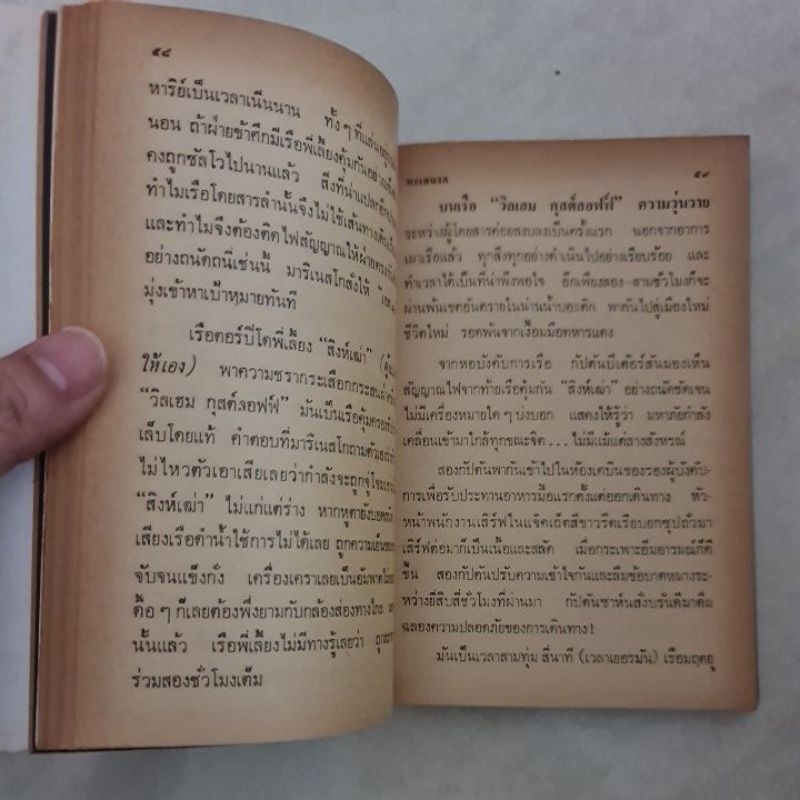 ๕๘
หาริย์เป็นเวลาเนิ่นนาน ทั้ง ๆ ที่แล่นอยู่
นอน ถ้าฝ่ายข้าศึกมีเรือพี่เลี้ยงคุ้มกันอย่าง
คงถูกซัลโวไปนานแล้ว สิ่งที่น่าแปลกอีก
ทำไมเรือโดยสารลำนั้นจึงไม่ใช้เส้นทางเดิน
และทำไมจึงต้องติดไฟสัญญาณให้ฝ่ายตรง
อย่างถนัดถนี่เช่นนี้ มาริเนสโกสั่งให้
มุ่งเข้าหาเป้าหมายทันที
เรือตอร์ปิโดพี่เลี้ยง “สิงห์เฒ่า”
ให้เอง) พาความชรากระเสือกกระสน
“วิลเฮม กุสต์ลอฟฟ์” มันเป็นเรือคุ้มครอง
เล็บโดยแท้ คำตอบที่มาริเนสโกถามตัวเอง
ไม่ไหวตัวเอาเสียเลยว่ากำลังจะถูกจู่โจม
“สิงห์เฒ่า” ไม่แก่แต่ร่าง หากหูตายังบอด
เสียงเรือดำน้ำใช้การไม่ได้เลย ถูกความเย็น
จับจนแข็งกั่ง เครื่องเคราเลยเป็นอัมพาต
ดื้อ ๆ ก็เลยต้องพึ่งยามกับกล้องส่องทางไกล
นั้นแล้ว เรือพี่เลี้ยงไม่มีทางรู้เลยว่า
ร่วมสองชั่วโมงเต็ม
ทะเลนรก ๕๙
บนเรือ “วิลเฮม กุสต์ลอฟฟ์” ความวุ่นวาย
ระหว่างผู้โดยสารค่อยสงบลงเป็นครั้งแรก นอกจากอาการ
เมาเรือแล้ว ทุกสิ่งทุกอย่างดำเนินไปอย่างเรียบร้อย และ
ทำเวลาได้เป็นที่น่าพึงพอใจ อีกเพียงสอง-สามชั่วโมงก็จะ
ผ่านพ้นเขตอันตรายในน่านน้ำบอลติก พากันไปสู่เมืองใหม่
ชีวิตใหม่ รอดพ้นจากเงื้อมมือทหารแดง
จากหอบังคับการเรือ กัปตันปีเตอร์สันมองเห็น
สัญญาณไฟจากท้ายเรือคุ้มกัน “สิงห์เฒ่า” อย่างถนัดชัดเจน
ไม่มีเครื่องหมายใด ๆ บ่งบอก แสดงให้รู้ว่า มหาภัยกำลัง
เคลื่อนเข้ามาใกล้ทุกขณะจิต...ไม่มีแม้แต่ลางสังหรณ์
สองกัปตันพากันเข้าไปในห้องเคบินของรองผู้บังคับ-
การเพื่อรับประทานอาหารมื้อแรกตั้งแต่ออกเดินทาง หัว-
หน้าพนักงานเสิร์ฟในแจ็คเอ็ตสีขาวรีดเรียบยกซุปถั่วมา
เสิร์ฟต่อมาก็เป็นเนื้อและสลัด เมื่อกระเพาะอิ่มอารมณ์ก็ดี
ขึ้น สองกัปตันปรับความเข้าใจกันและลืมข้อบาดหมางระ-
หว่างยี่สิบสี่ชั่วโมงที่ผ่านมา กัปตันซาห์นสั่งบรันดีมาดื่ม
ฉลองความปลอดภัยของการเดินทาง!
มันเป็นเวลาสามทุ่ม สี่นาที (เวลาเยอรมัน) เรือมฤตยู